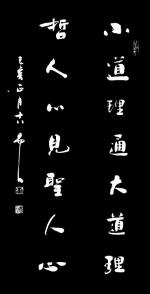 小道理通大道理
哲人心見聖人心
己亥正月十六